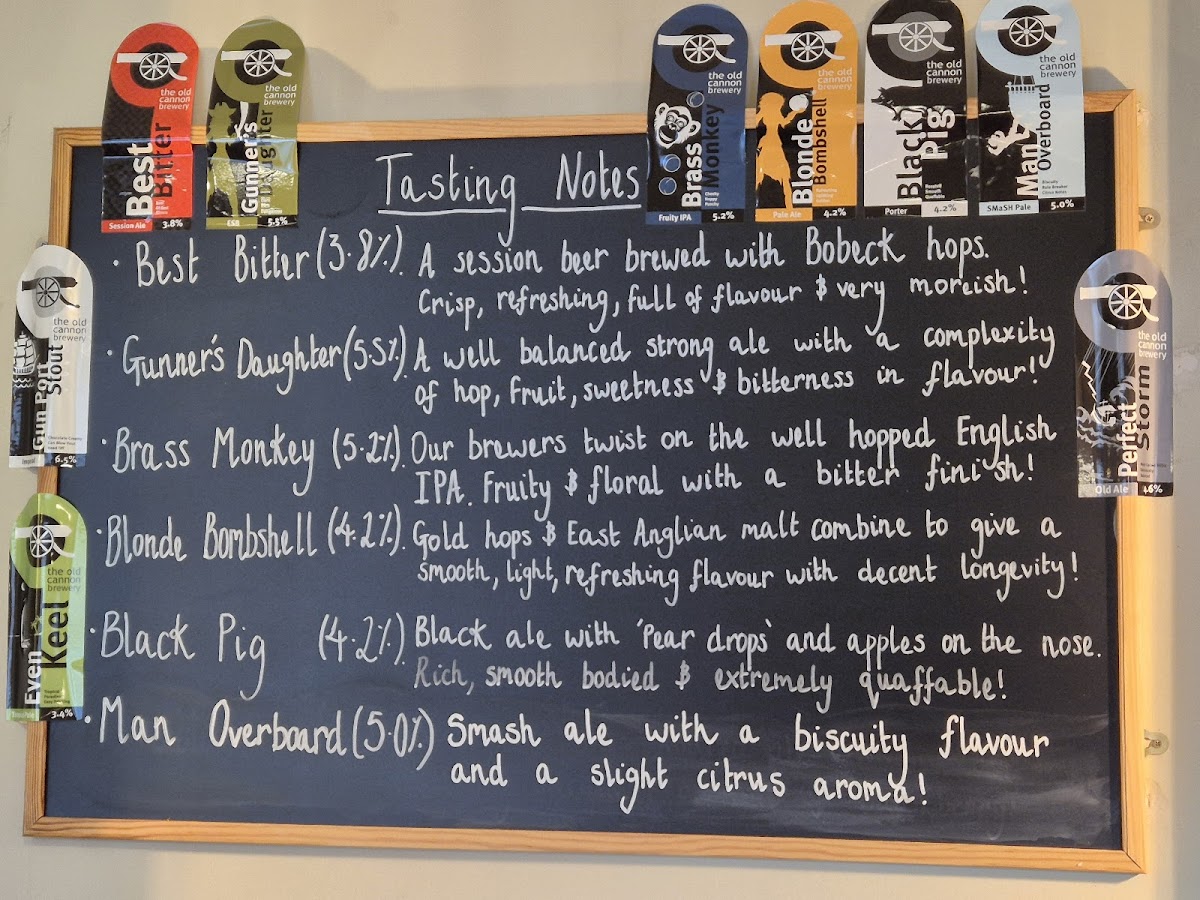 the old
cannon
brewery
Best
Bitter
Session Ale 3.8%
the old
cannon
brewery
Gunner's
Daughter
ESB 5.5%
the old
cannon
brewery
Brass
Monkey
Fruity IPA 5.2%
the old
cannon
brewery
Blonde
Bombshell
Pale Ale 4.2%
the old
cannon
brewery
Black
Pig
Porter 4.2%
the old
cannon
brewery
Man
Overboard
Biscuity
Citrus Notes
SMaSH Pale 5.0%
Tasting Notes
· Best Bitter (3.8%). A session beer brewed with Bobeck hops.
Crisp, refreshing, full of flavour & very moreish!
· Gunner's Daughter (5.5%). A well balanced strong ale with a complexity
of hop, fruit, sweetness & bitterness in flavour!
· Brass Monkey (5.2%). Our brewers twist on the well hopped English
IPA. Fruity & floral with a bitter finish!
· Blonde Bombshell (4.2%). Gold hops & East Anglian malt combine to give a
smooth, light, refreshing flavour with decent longevity!
· Black Pig (4.2%). Black ale with 'Pear drops' and apples on the nose.
Rich, smooth bodied & extremely quaffable!
· Man Overboard (5.0%) Smash ale with a biscuity flavour
and a slight citrus aroma!
the old
cannon
brewery
Gun Port
Stout
6.5%
the old
cannon
brewery
Even
Keel
3.4%
the old
cannon
brewery
Perfect
Storm
Old Ale 4.6%